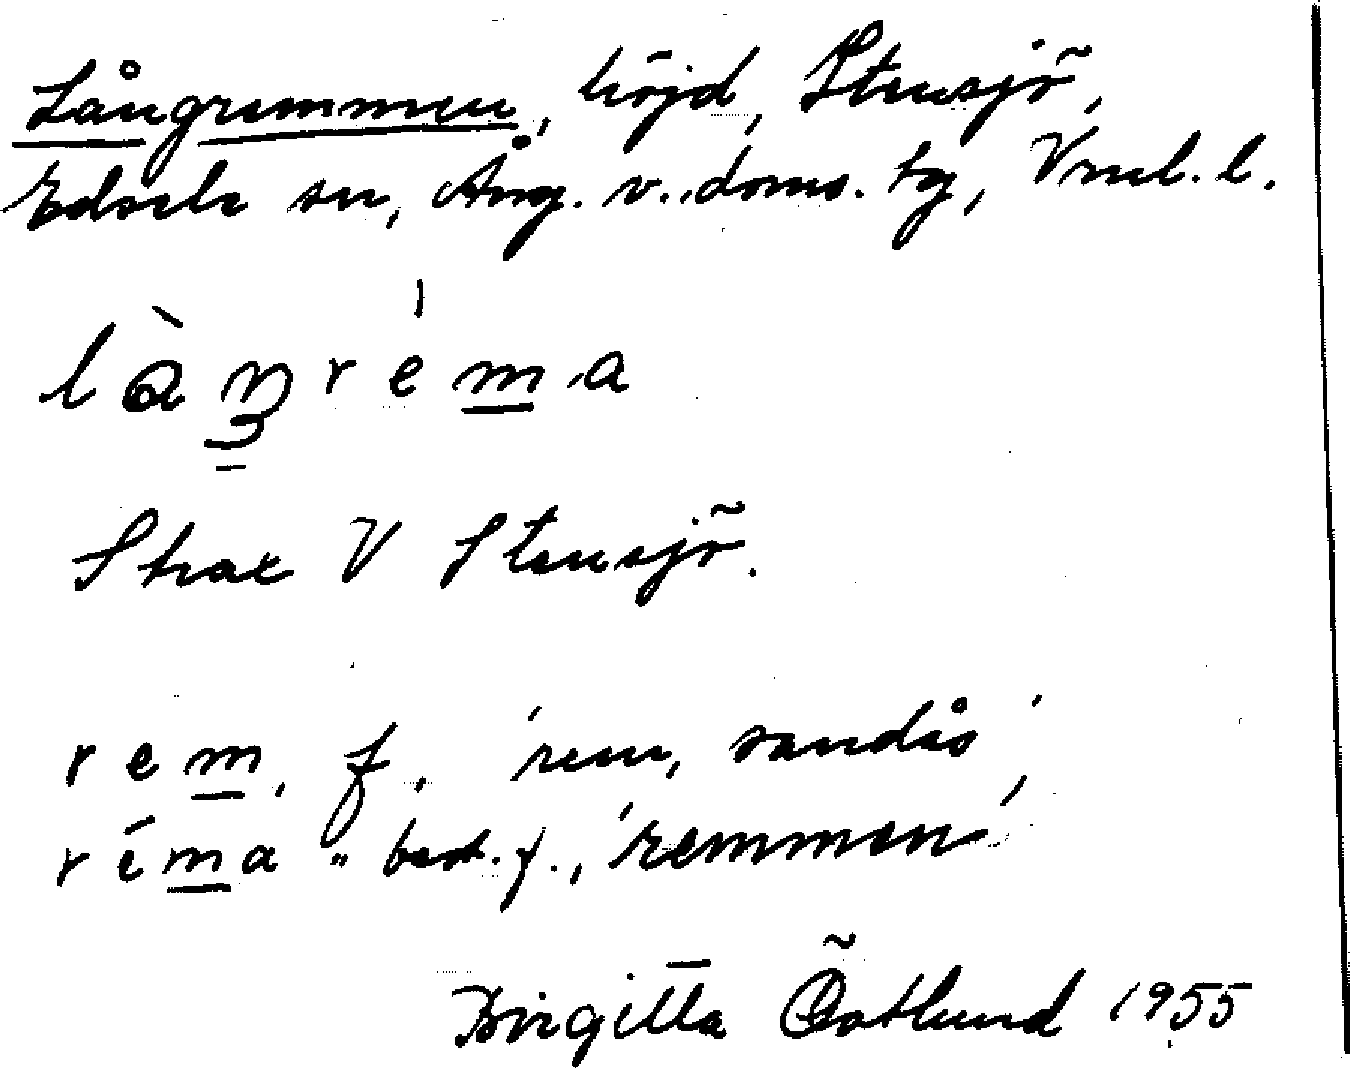 Långremmen, höjd, Stensjö,
Edsele sn, Ång. v. doms. tg, Vnrl. l.
làŋréma
Strax V Stensjö.
rem, f. 'rem, sandås',
réma " best. f., 'remmen'
Birgitta Östlund 1955